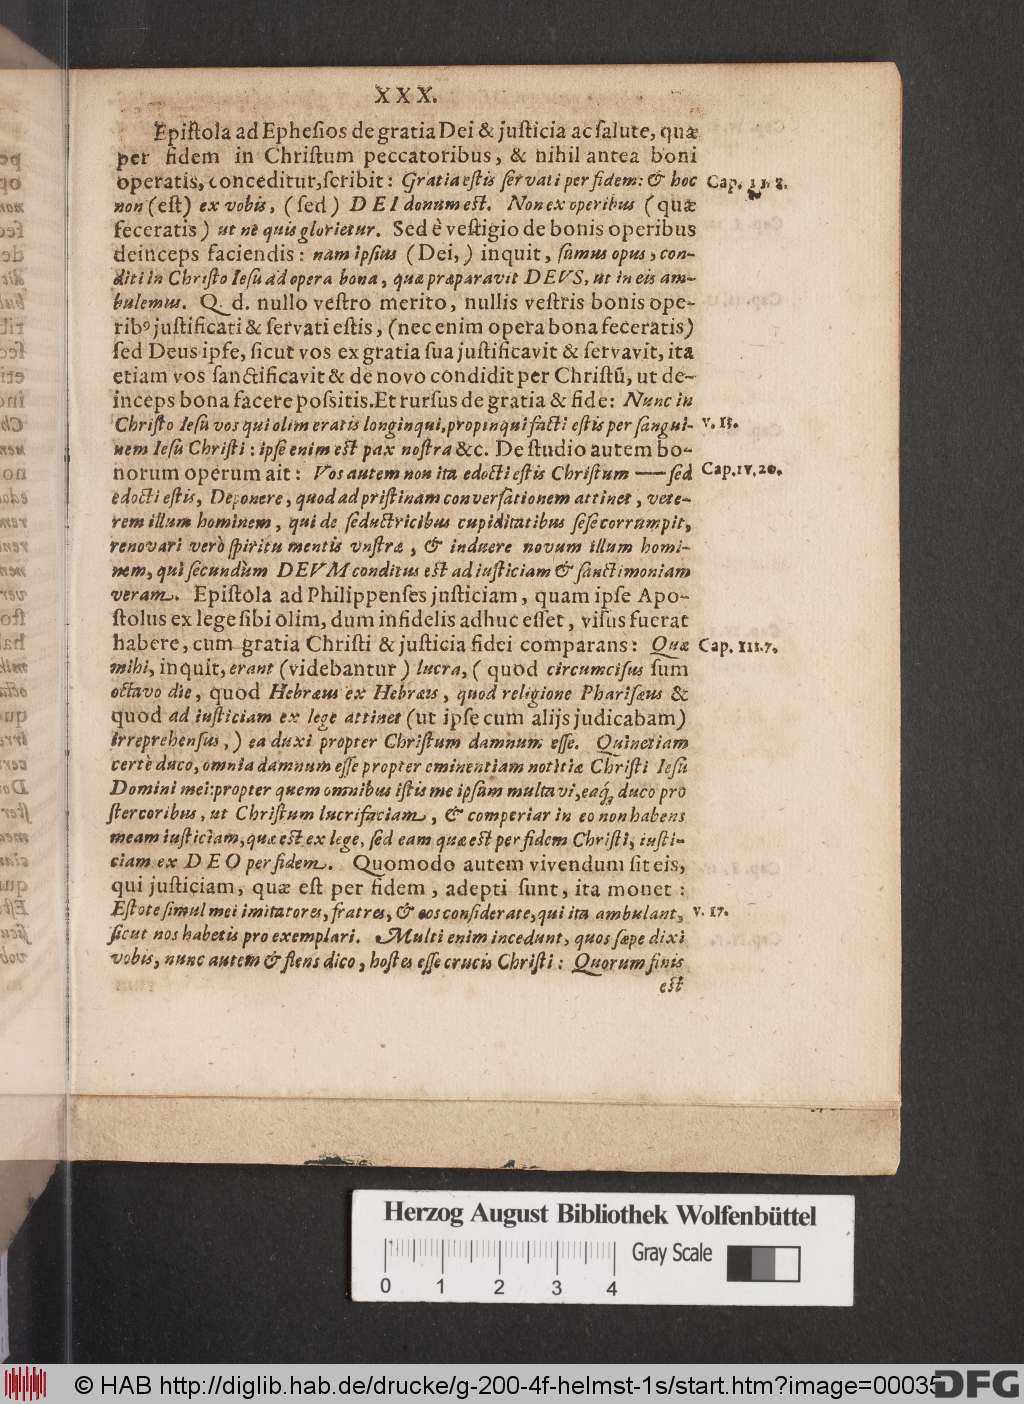 XXX.
Epiſtola ad Epheſios de gratia Dei & juſticia ac ſalute, quæ
per fidem in Chriſtum peccatoribus, & nihil antea boni
operatis, conceditur, ſcribit: Gratia eſtis ſervati per fidem: & hoc
Cap. II. 8.
non (eſt) ex vobis, (ſed) DEI donum eſt. Non ex operibus (quæ
feceratis) ut nè quis glorietur. Sed è veſtigio de bonis operibus
deinceps faciendis: nam ipſius (Dei,) inquit, ſumus opus, con-
diti in Chriſto Ieſu ad opera bona, quæ præparavit DEVS, ut in eis am-
bulemus. Q. d. nullo veſtro merito, nullis veſtris bonis ope-
ribꝰ juſtificati & ſervati eſtis, (nec enim opera bona feceratis)
ſed Deus ipſe, ſicut vos ex gratia ſua juſtificavit & ſervavit, ita
etiam vos ſanctificavit & de novo condidit per Chriſtū, ut de-
inceps bona facere poſsitis. Et rurſus de gratia & fide: Nunc in
Chriſto Ieſu vos qui olim eratis longinqui, propinqui facti eſtis per ſangui-
v. 13.
nem Ieſu Chriſti: ipſe enim eſt pax noſtra &c. De ſtudio autem bo-
norum operum ait: Vos autem non ita edocti eſtis Chriſtum — ſed
Cap. IV. 20.
edocti eſtis, Deponere, quod ad priſtinam converſationem attinet, vete-
rem illum hominem, qui de ſeductricibus cupiditatibus ſeſe corrumpit,
renovari verò ſpiritu mentis vnſtræ, & induere novum illum homi-
nem, qui ſecundùm DEVM conditus eſt ad iuſticiam & ſanctimoniam
veram. Epiſtola ad Philippenſes juſticiam, quam ipſe Apo-
ſtolus ex lege ſibi olim, dum infidelis adhuc eſſet, viſus fuerat
habere, cum gratia Chriſti & juſticia fidei comparans: Quæ
Cap. III. 7.
mihi, inquit, erant (videbantur) lucra, (quod circumciſus ſum
octavo die, quod Hebræus ex Hebræis, quod religione Phariſæus &
quod ad iuſticiam ex lege attinet (ut ipſe cum alijs judicabam)
irreprehenſus,) ea duxi propter Chriſtum damnum eſſe. Quinetiam
certè duco, omnia damnum eſſe propter eminentiam notitiæ Chriſti Ieſu
Domini mei: propter quem omnibus iſtis me ipſum multavi, eaq́; duco pro
ſtercoribus, ut Chriſtum lucrifaciam, & comperiar in eo non habens
meam iuſticiam, quæ eſt ex lege, ſed eam quæ eſt per fidem Chriſti, iuſti-
ciam ex DEO per fidem. Quomodo autem vivendum ſit eis,
qui juſticiam, quæ eſt per fidem, adepti ſunt, ita monet:
Eſtote ſimul mei imitatores, fratres, & eos conſiderate, qui ita ambulant,
v. 17.
ſicut nos habetis pro exemplari. Multi enim incedunt, quos ſæpe dixi
vobis, nunc autem & flens dico, hoſtes eſſe crucis Chriſti: Quorum finis
eſt
Herzog August Bibliothek Wolfenbüttel
Gray Scale
0 1 2 3 4
© HAB http://diglib.hab.de/drucke/g-200-4f-helmst-1s/start.htm?image=00035
DFG